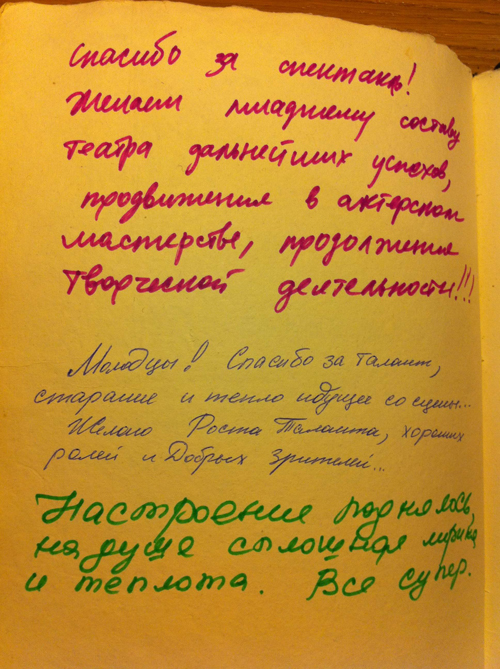 Спасибо за спектакль!
Желаем младшему составу
театра дальнейших успехов,
продвижения в актерском
мастерстве, продолжения
творческой деятельности!!!
Молодцы! Спасибо за талант,
старание и тепло идущее со сцены...
Желаю Роста Таланта, хороших
ролей и Добрых Зрителей...
Настроение поднялось,
на душе сплошная лирика
и теплота. Все супер.